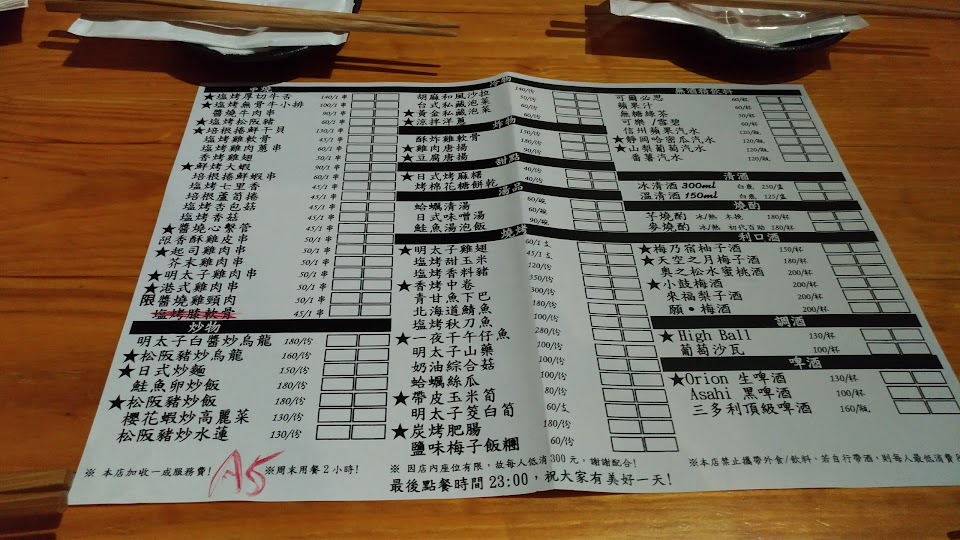 串燒
★塩烤厚切牛舌 140/1串
★塩烤無骨牛小排 100/1串
醬燒牛肉串 90/1串
★塩烤松阪豬 60/1串
★培根捲鮮干貝 130/1串
塩烤雞軟骨 45/1串
塩烤雞肉蔥串 60/1串
香烤雞翅 50/1串
★鮮烤大蝦 90/1串
培根捲鮮蝦串 60/1串
塩烤七里香 45/1串
培根蘆筍捲 45/1串
塩烤杏包菇 45/1串
塩烤香菇 45/1串
★醬燒心繫管 45/1串
限香酥雞皮串 50/1串
★起司雞肉串 50/1串
芥末雞肉串 50/1串
★明太子雞肉串 50/1串
★港式雞肉串 50/1串
限醬燒雞頸肉 50/1串
塩烤膝軟骨 45/1串
炒物
明太子白醬炒烏龍 180/份
★松阪豬炒烏龍 160/份
★日式炒麵 150/份
鮭魚卵炒飯 180/份
★松阪豬炒飯 180/份
櫻花蝦炒高麗菜 130/份
松阪豬炒水蓮 130/份
冷物
胡麻和風沙拉 140/份
台式私藏泡菜
★黃金私藏泡菜
★涼拌洋蔥
炸物
酥炸雞軟骨 130/份
★雞肉唐揚
★豆腐唐揚 90/份
甜點
★日式烤麻糬 40/份
烤棉花糖餅乾 40/份
湯品
蛤蠣清湯 60/碗
日式味噌湯
鮭魚湯泡飯 90/碗
燒烤
★明太子雞翅 60/1支
塩烤甜玉米
塩烤香料豬 120/份
★香烤中卷 350/份
青甘魚下巴 300/份
北海道鯖魚 180/份
塩烤秋刀魚 100/份
★一夜干午仔魚 280/份
明太子山藥
奶油綜合菇
蛤蠣絲瓜
★帶皮玉米筍
明太子筊白筍 60/支
★炭烤肥腸
鹽味梅子飯糰 60/份
無酒精飲料
可爾必思 60/杯
蘋果汁 60/杯
無糖綠茶 30/杯
可樂/雪碧 60/杯
信州蘋果汽水 120/瓶
★靜岡哈密瓜汽水 120/瓶
★山梨葡萄汽水 120/瓶
番薯汽水 120/瓶
清酒
冰清酒300ml 白鹿 250/壺
溫清酒150ml 白鹿 125/壺
燒酌
芋燒酌 冰/熱 木挽 180/杯
麥燒酌 冰/熱 初代百助 180/杯
利口酒
★梅乃宿柚子酒 150/杯
★天空之月梅子酒 180/杯
奧之松水蜜桃酒 200/杯
★小鼓梅酒 200/杯
來福梨子酒 200/杯
願•梅酒 200/杯
調酒
★High Ball 130/杯
葡萄沙瓦 100/杯
啤酒
★Orion 生啤酒 130/杯
Asahi 黑啤酒 100/杯
三多利頂級啤酒 160/瓶
※本店加收一成服務費!
A5
※周末用餐2小時!
※ 因店內座位有限,故每人低消300元,謝謝配合!
※本店禁止攜帶外食/飲料,若自行帶酒,則每人最低消費
最後點餐時間23:00,祝大家有美好一天!